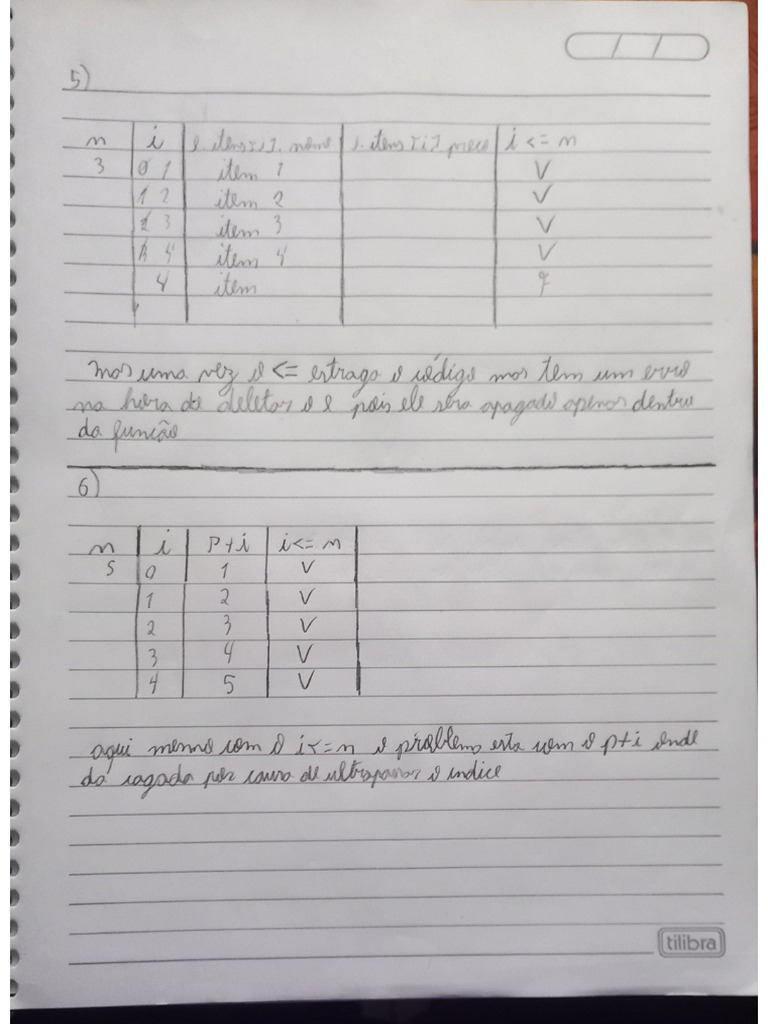 5)
n i l.itens[i].nome l.itens[i].preco i <= n
3 0 1 item 1 V
1 2 item 2 V
2 3 item 3 V
4 item 4 V
4 item F
mas uma vez o <= estrago o código mas tem um erro
na hora de deletar o l pois ele sera apagado apenas dentro
da função
6)
n i P+i i<= n
5 0 1 V
1 2 V
2 3 V
3 4 V
4 5 V
aqui mesmo com o i<=n o problema esta com o p+i onde
da cagada por causa de ultrapassar o indice
tilibra